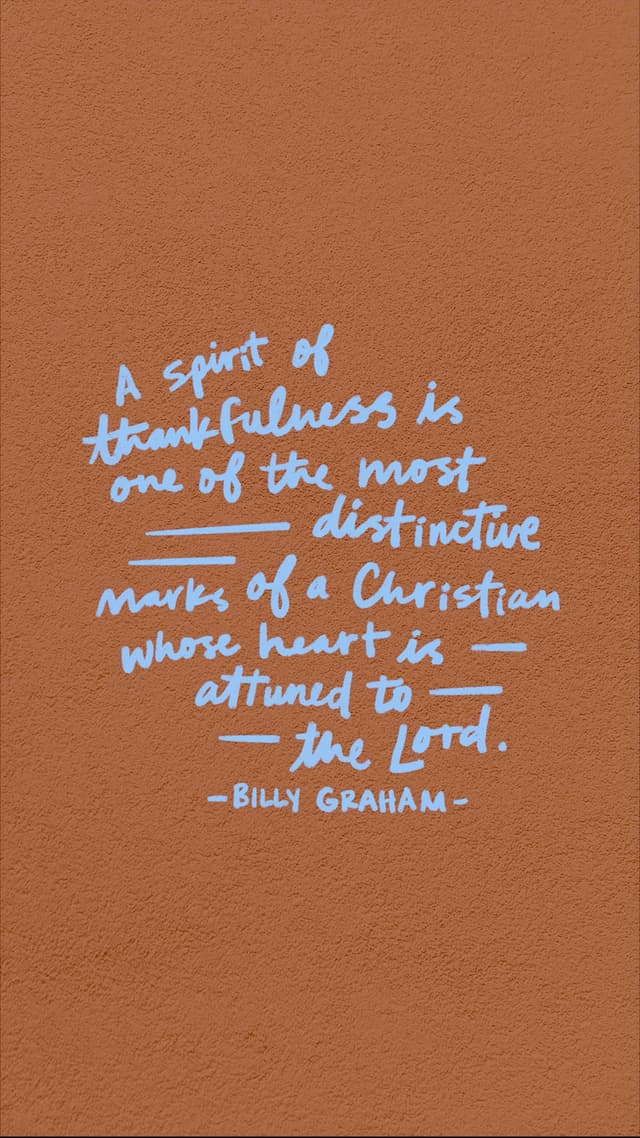 A spirit of
thankfulness is
one of the most
distinctive
marks of a Christian
whose heart is
attuned to
the Lord.
-BILLY GRAHAM-